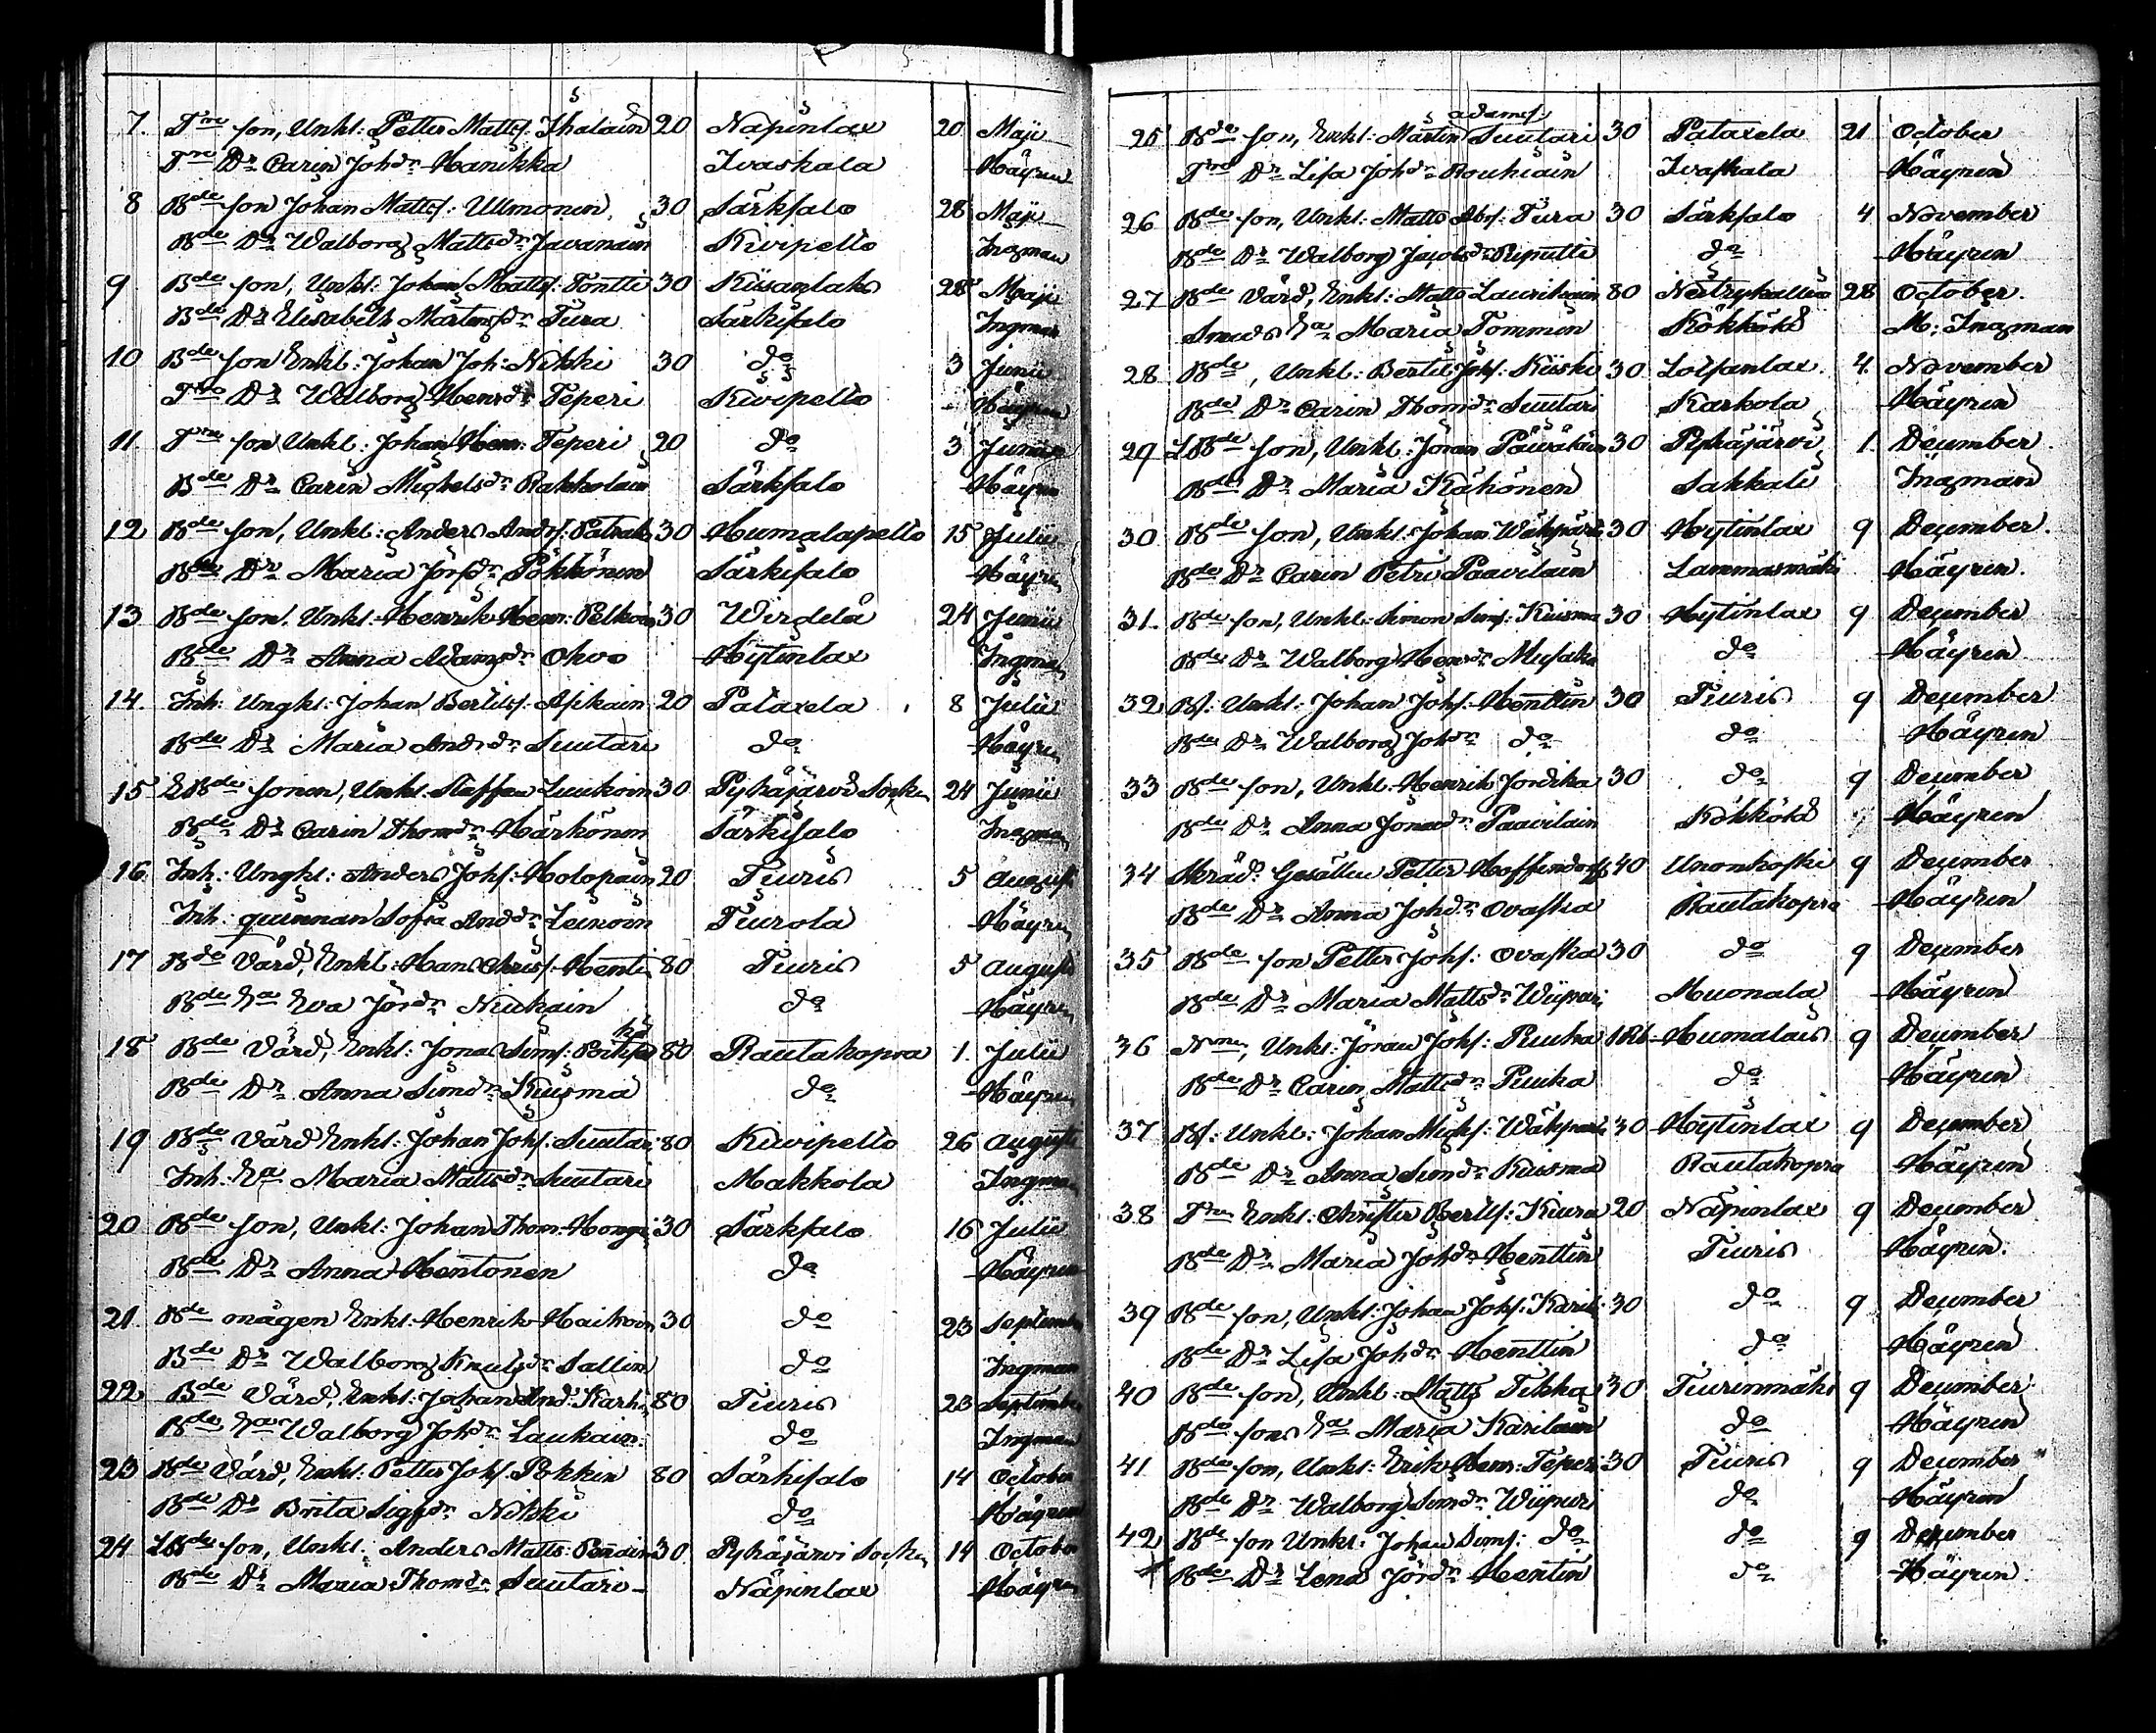 7. Tre son, Unkl: Petter Matts: Ihalain 20 Näpinlax 20 Maji
Tre Dr Carin Johdr Hanikka Ivaskala Häyrén
8 Bde son Johan Matts: Ullmonen 30 Särksalo 28 Maji
Bde Dr Walborg Mattsdr Javanain Kivipelto Ingman
9 Bde son, Unkl: Johan Matts: Tontti 30 Kissanlaks 28 Maji
Bde Dr Elisabeth Mårtensdr Tura Särkisalo Ingman
10 Bde son Enkl: Johan Joh: Nikki 30 do 3 Junii
Tre Dr Walborg Henrdr Teperi Kivipelto Häyrén
11. Tre son Unkl: Johan Henr: Teperi 20 do 3 Junii
Bde Dr Carin Michelsdr Rakkolain Särksalo Häyrén
12 Bde son, Unkl: Anders Ands: 30 Humalapelto 15 Julii
Bde Dr Maria Jörsdr Pökkönen Särkisalo Häyrén
13 Bde son. Unkl: Henrik Henr: Pelkoin 30 Wirdelä 24 Junii
Bde Dr Anna Adamsdr Ohvo Hytinlax Ingman
14. Inh: Ungkl: Johan Bertils: Asikain 20 Pataxela 8 Julii
Bde Dr Maria Anddr Suutari do Häyrén
15 LBde sonen, Unkl: Staffan Luukoin 30 Pyhäjärvi Socken 24 Junii
Bde Dr Carin Thomdr Härkönen Särkisalo Ingman
16 Inh: Ungkl: Anders Johs: Holopain 20 Tiuris 5 Augusti
Inh. quinnan Sofia Anddr Leinoin Tiurola Häyrén
17 Bde Värd, Enkl: Hans Chriss: Henti 80 Tiuris 5 Augusti
Bde Ea Eva Jördr Niukain do Häyrén
18 Bde Värd, Enkl: Jonas Sims: 80 Rautakopra 1. Julii
Bde Dr Anna Simdr Kuisma do Häyrén
19 Bde Värd Enkl: Johan Johs: Suutari 80 Kiwipelto 26 Augusti
Inh. Ea Maria Mattsdr Suutari Makkola Ingman
20 Bde son, Unkl: Johan Thom: 30 Särksalo 16 Julii
Bde Dr Anna Hentonen do Häyrén
21. Bde mågen Enkl: Henrik Haikoin 30 do 23 September
Bde Dr Walborg Knutsdr Sallin do Ingman
22 Bde Värd, Enkl: Johan And: Karhi 80 Tiuris 23 September
Bde Ea Walborg Johdr Laukain do Ingman
23 Bde Värd, Enkl: Petter Johs: Pokkin 80 Särkisalo 14 October
Bde Dr Brita Sigfdr Nikki do Häyrén
24 LBde son, Unkl: Anders Matts: 30 Pyhäjärvi Socken 14 October
Bde Dr Maria Thomdr Suutari Näpinlax Häyrén
adams
25 Bde son, Enkl: Mårten Suutari 30 Pataxela 21 October
Tre Dr Lisa Johdr Rouhiain Ivaskala Häyrén
26 Bde son, Unkl: Matts Abs: Tura 30 Särksalo 4 November
Bde Dr Walborg Jacobsdr Ripatti do Häyrén
27 Bde Värd, Enkl: Matts Laurikain 80 28 October.
Smeds Ea Maria Tommin Kökkölä M: Ingman
28 Bde, Unkl: Bertil Johs: Kiiski 30 Loisanlax. 4. November
Bde Dr Carin Thomdr Suutari Karkola Häyrén
29 LBde son, Unkl: Jöran Päiväläin 30 Pyhäjärvi 1. December
Bde Dr Maria Kähönen Sakkali Ingman
30 Bde son, Unkl. Johan Wäkipärä 30 Hytinlax 9 December.
Bde Dr Carin Petri Paavilain Lammasmäki Häyrén.
31. Bde son, Unkl: Simon Sims: Kuisma 30 Hytinlax 9 December
Bde Dr Walborg Henrdr Musaka do Häyrén.
32 Bs. Unkl: Johan Johs: Henttin 30 Tiuris 9 December
Bde Dr Walborg Johdr do do Häyrén
33 Bde son, Unkl: Henrik Jordika 30 do 9 December
Bde Dr Anna Jonadr Paavilain Kökkölä Häyrén
34 Skräd: Gesällen Petter Hoffendorff 40 Unonkoski 9 December
Bde Dr Anna Johdr Ovaska Rautakopra Häyrén
35 Bde son Petter Johs: Ovaska 30 do 9 December
Bde Dr Maria Mattsdr Wiipuri Muonala Häyrén
36 Unkl: Jöran Johs: Puuka 1Rb: Humalais 9 December
Bde Dr Carin Mattsdr Puuka do Häyrén
37 Bs: Unkl: Johan Michs: Wäkipärä 30 Hytinlax 9 December
Bde Dr Anna Simdr Kuisma Rautakopra Häyrén
38 Tre Enkl: Christer Bertls: Kiura 20 Näpinlax 9 December
Bde Dr Maria Johdr Henttin Tiuris Häyrén.
39 Bde son, Unkl: Johan Johs: Karil: 30 do 9 December
Bde Dr Lisa Johdr Henttin do Häyrén
40 Bde son, Unkl: Matts Tikka 30 Tiurinmäki 9 December
Bde sons Ea Maria Karilain do Häyrén
41 Bde son, Unkl: Erik Henr: Teperi 30 Tiuris 9 December
Bde Dr Walborg Simdr Wiipuri do Häyrén
42 Bde son Unkl: Johan Sims: do do 9 December
Bde Dr Lena Jördr Hentin do Häyrén.